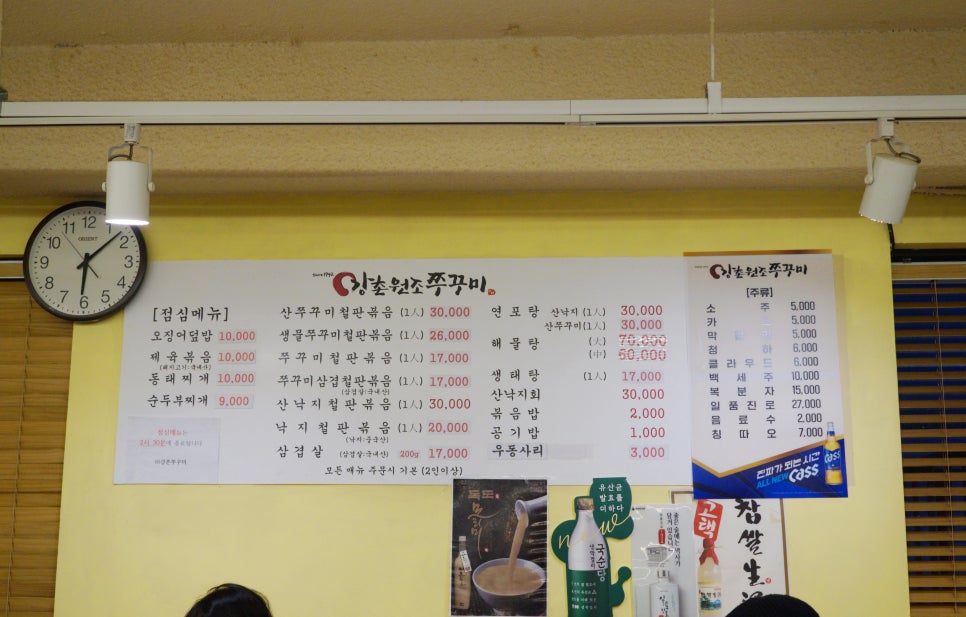 12
11
1
10
2
9
3
8
4
7
5
6
ORIENT
since 1992
강촌원조쭈꾸미
[점심메뉴]
오징어덮밥 10,000
제육볶음 10,000
(돼지고기:국내산)
동태찌개 10,000
순두부찌개 9,000
점심메뉴는
강촌쭈꾸미
산쭈꾸미철판볶음 (1人) 30,000
생물쭈꾸미철판볶음 (1人) 26,000
쭈꾸미철판볶음 (1人) 17,000
쭈꾸미삼겹철판볶음 (1人) 17,000
(삼겹살:국내산)
산낙지철판볶음 (1人) 30,000
낙지철판볶음 (1人) 20,000
(낙지:중국산)
삼겹살 (삼겹살:국내산) 200g 17,000
모든 메뉴 주문시 기본 (2인이상)
연포탕 산낙지 (1人) 30,000
산쭈꾸미(1人) 30,000
해물탕 (大) 70,000
(中) 60,000
생태탕 (1人) 17,000
산낙지회 30,000
볶음밥 2,000
공기밥 1,000
우동사리 3,000
강촌원조쭈꾸미
[주류]
소주 5,000
카 5,000
막 5,000
청하 6,000
클라우드 6,000
백세주 10,000
복분자 15,000
일품진로 27,000
음료수 2,000
칭따오 7,000
진짜가 되는 시간
ALL NEW Cass
독도
유산균
발효를
더하다
new
국순당
고택
찹쌀生